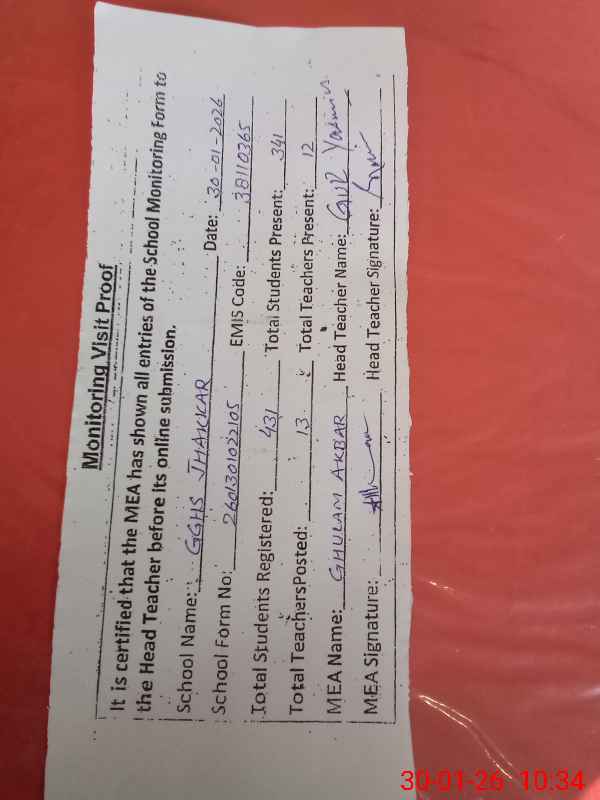 Monitoring Visit Proof
It is certified that the MEA has shown all entries of the School Monitoring Form to
the Head Teacher before its online submission.
School Name: GGHS JHAKKAR Date: 30-01-2026
School Form No: 2601301022105 EMIS Code: 38110365
Total Students Registered: 431 Total Students Present: 341
Total TeachersPosted: 13 Total Teachers Present: 12
MEA Name: GHULAM AKBAR Head Teacher Name: GUL Yasmin
MEA Signature: Head Teacher Signature:
30-01-26 10:34